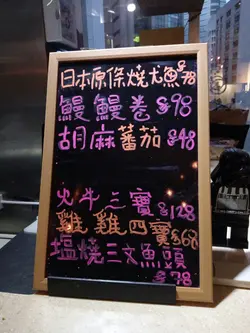 日本原條燒尤魚$78
鰻鰻卷$98
胡麻蕃茄$48
火牛三寶$128
雞雞四寶$68
塩燒三文魚頭
$78